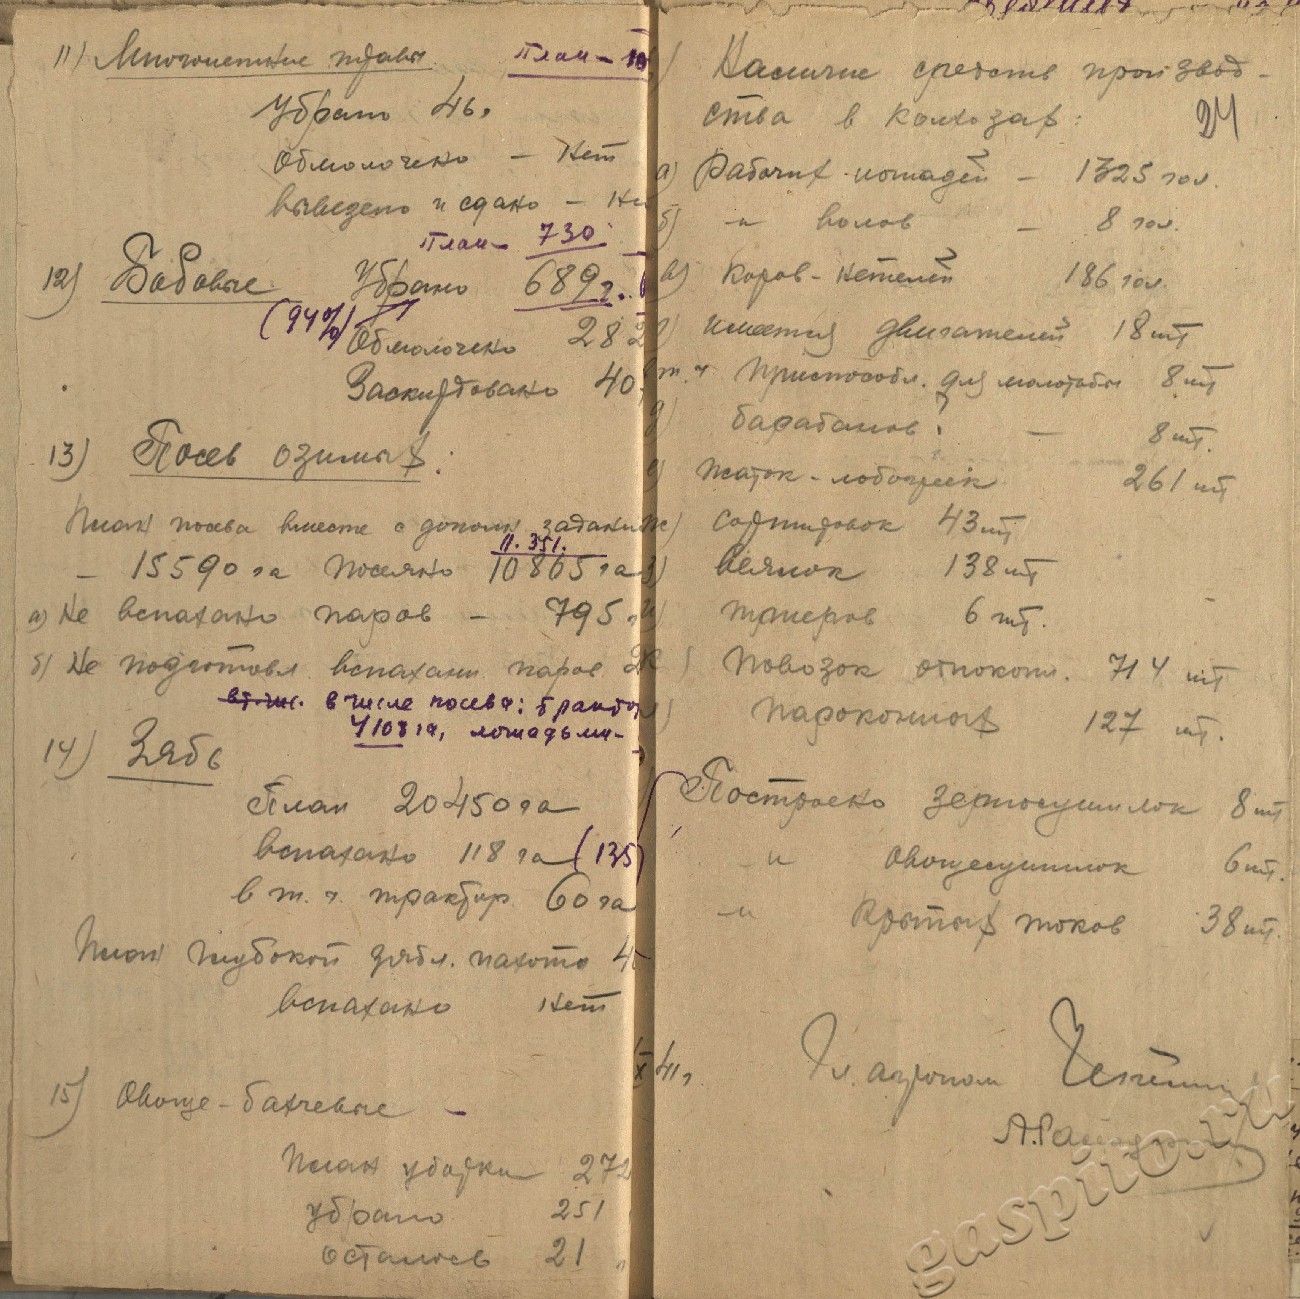 11) Многолетние травы План – 10
Убрано 46.
Обмолочено – Нет
вывезено и сдано –
План – 730
12) Бобовые Убрано 689 г.
(94%) Обмолочено 282
Заскирдовано 40
13) Посев озимых:
План посева вместе с дополн задани
11.351.
– 15590 га посеяно 10865 га
а) Не вспахано паров – 795
б) Не подготовл вспахани паров
в т. ч. в числе посева: трактор
4108 га, лошадьми –
14) Зябь
План 20450 га
вспахано 118 га (135
в т. ч. трактор 60 га
План глубокой зябл. пахоты 4
вспахано нет
15) Овоще-бахчевые –
План уборки 272
убрано 251
осталось 21
Наличие средств производ-
ства в колхозах: 24
а) Рабочих лошадей – 1325 гол.
б) –"– волов – 8 гол.
в) Коров-нетелей 186 гол.
г) имеется двигателей 18 шт
в т. ч приспособл. для молотьбы 8 шт
д) барабанов? – 8 шт.
е) жаток-лобогреек 261 шт
ж) сортировок 43 шт
з) веялок 138 шт
и) триеров 6 шт.
к) повозок однокон. 714 шт
л) пароконных 127 шт.
Построено зерносушилок 8 шт
–"– овощесушилок 6 шт.
–"– Крытых токов 38 шт.
X 41 г.
Гл. агроном
gaspito.ru